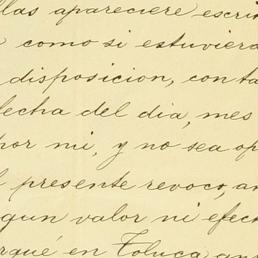 llas apareciere escri
como si estuviera
disposicion, con ta
fecha del dia, mes
por mi, y no sea op
presente revoco, an
gun valor ni efect
rqué en Toluca, an